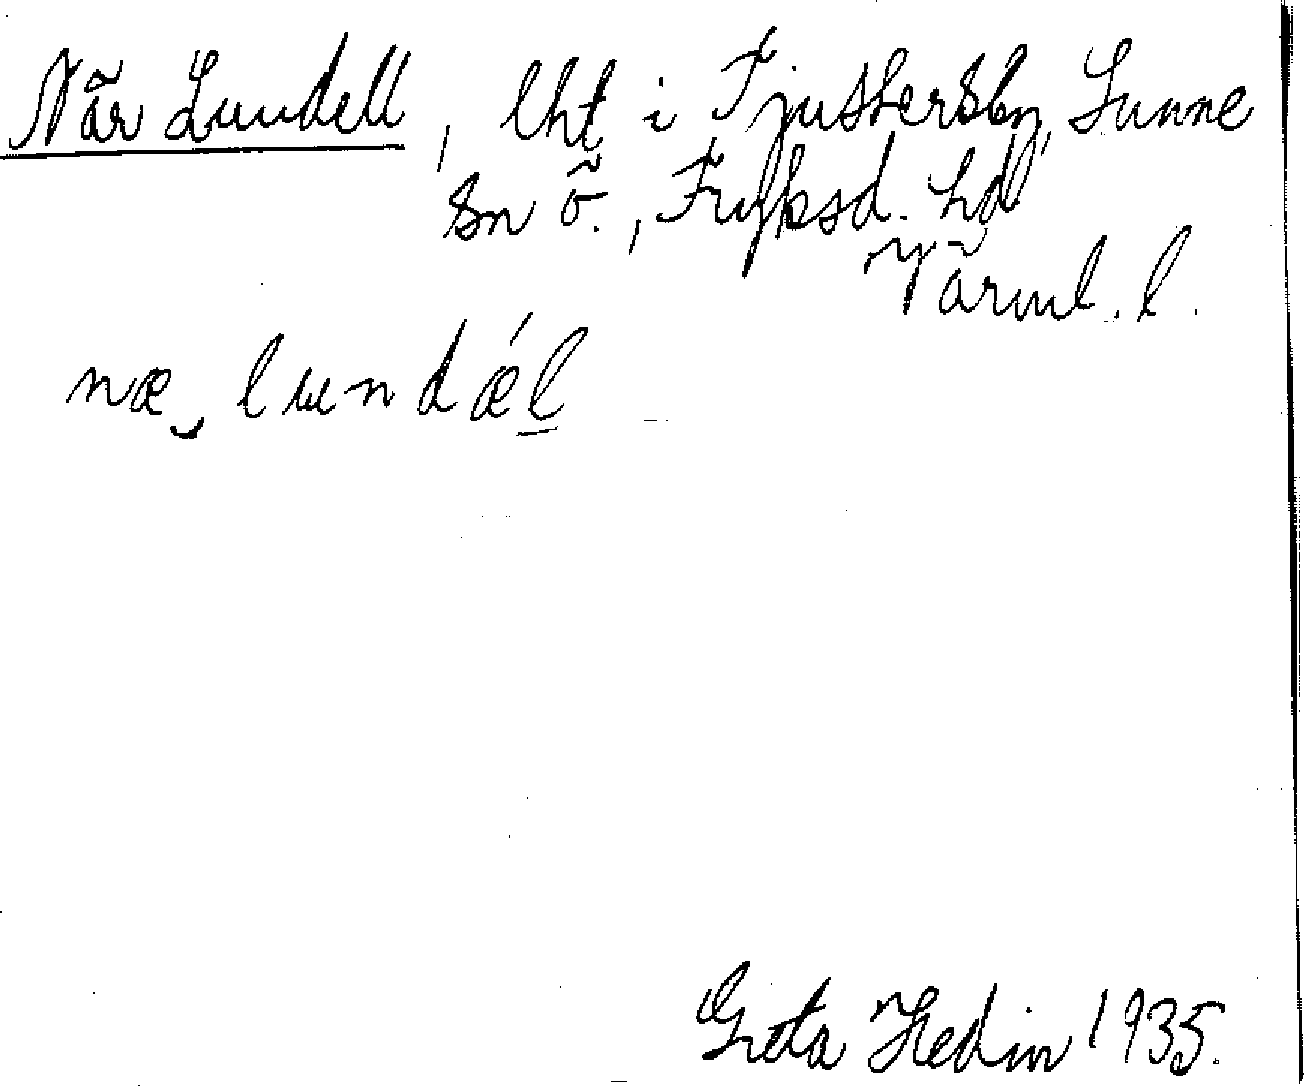 När Lundell, lht i Tjustersby, Sunne
sn ö., Fryksd. hd
Värml. l.
næ lundǽl
Greta Hedin 1935.